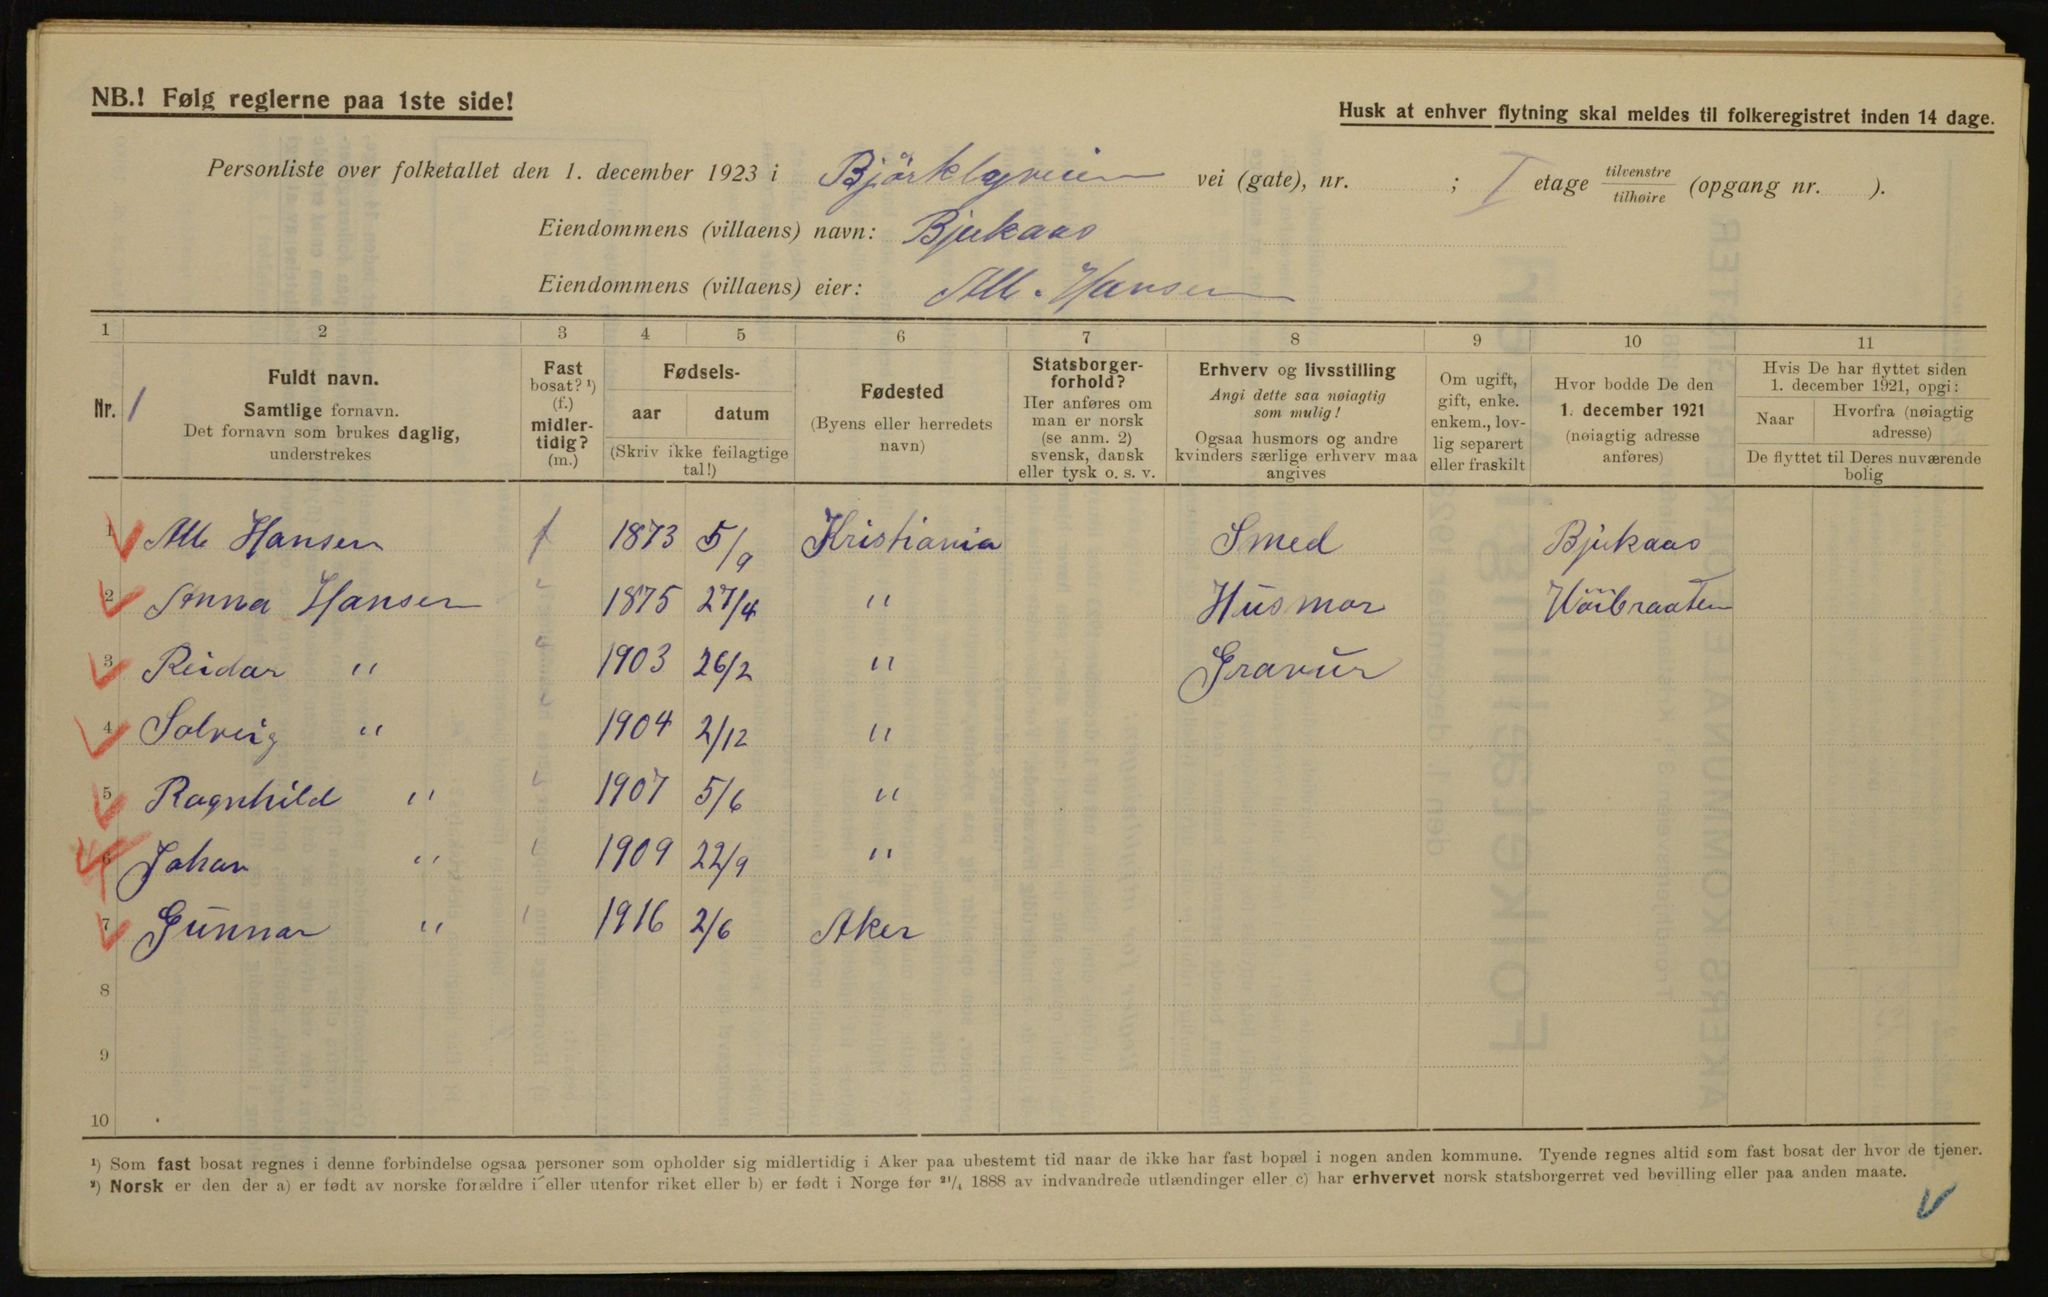 NB.! Følg reglerne paa 1ste side!
Husk at enhver flytning skal meldes til folkeregistret inden 14 dage.
Personliste over folketallet den 1. december 1923 i vei (gate), nr. ; I etage tilvenstre/tilhøire (opgang nr. ).
Eiendommens (villaens) navn: Bjukaas
Eiendommens (villaens) eier: Hansen
1 2 3 4 5 6 7 8 9 10 11
Nr. 1
Fuldt navn.
Samtlige fornavn.
Det fornavn som brukes daglig,
understrekes
Fast
bosat? ¹)
(f.)
midler-
tidig?
(m.)
Fødsels-
aar datum
(Skriv ikke feilagtige
tal!)
Fødested
(Byens eller herredets
navn)
Statsborger-
forhold?
Her anføres om
man er norsk
(se anm. 2)
svensk, dansk
eller tysk o. s. v.
Erhverv og livsstilling
Angi dette saa nøiagtig
som mulig!
Ogsaa husmors og andre
kvinders særlige erhverv maa
angives
Om ugift,
gift, enke.
enkem., lov-
lig separert
eller fraskilt
Hvor bodde De den
1. december 1921
(nøiagtig adresse
anføres)
Hvis De har flyttet siden
1. december 1921, opgi:
Naar Hvorfra (nøiagtig
adresse)
De flyttet til Deres nuværende
bolig
1 Hansen f 1873 5/9 Kristiania Smed Bjukaas
2 Anna Hansen " 1875 27/4 " Husmor
3 Reidar " " 1903 26/2 " Gravür
4 Solveig " " 1904 2/12 "
5 Ragnhild " " 1907 5/6 "
6 Johan " " 1909 22/9 "
7 Gunnar " " 1916 2/6 Aker
8
9
10
¹) Som fast bosat regnes i denne forbindelse ogsaa personer som opholder sig midlertidig i Aker paa ubestemt tid naar de ikke har fast bopæl i nogen anden kommune. Tyende regnes altid som fast bosat der hvor de tjener.
²) Norsk er den der a) er født av norske forældre i eller utenfor riket eller b) er født i Norge før ²¹/₄ 1888 av indvandrede utlændinger eller c) har erhvervet norsk statsborgerret ved bevilling eller paa anden maate.